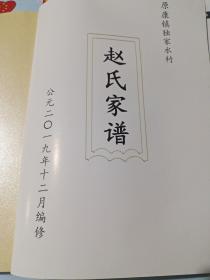 原康镇独家水村
赵氏家谱
公元二〇一九年十二月编修